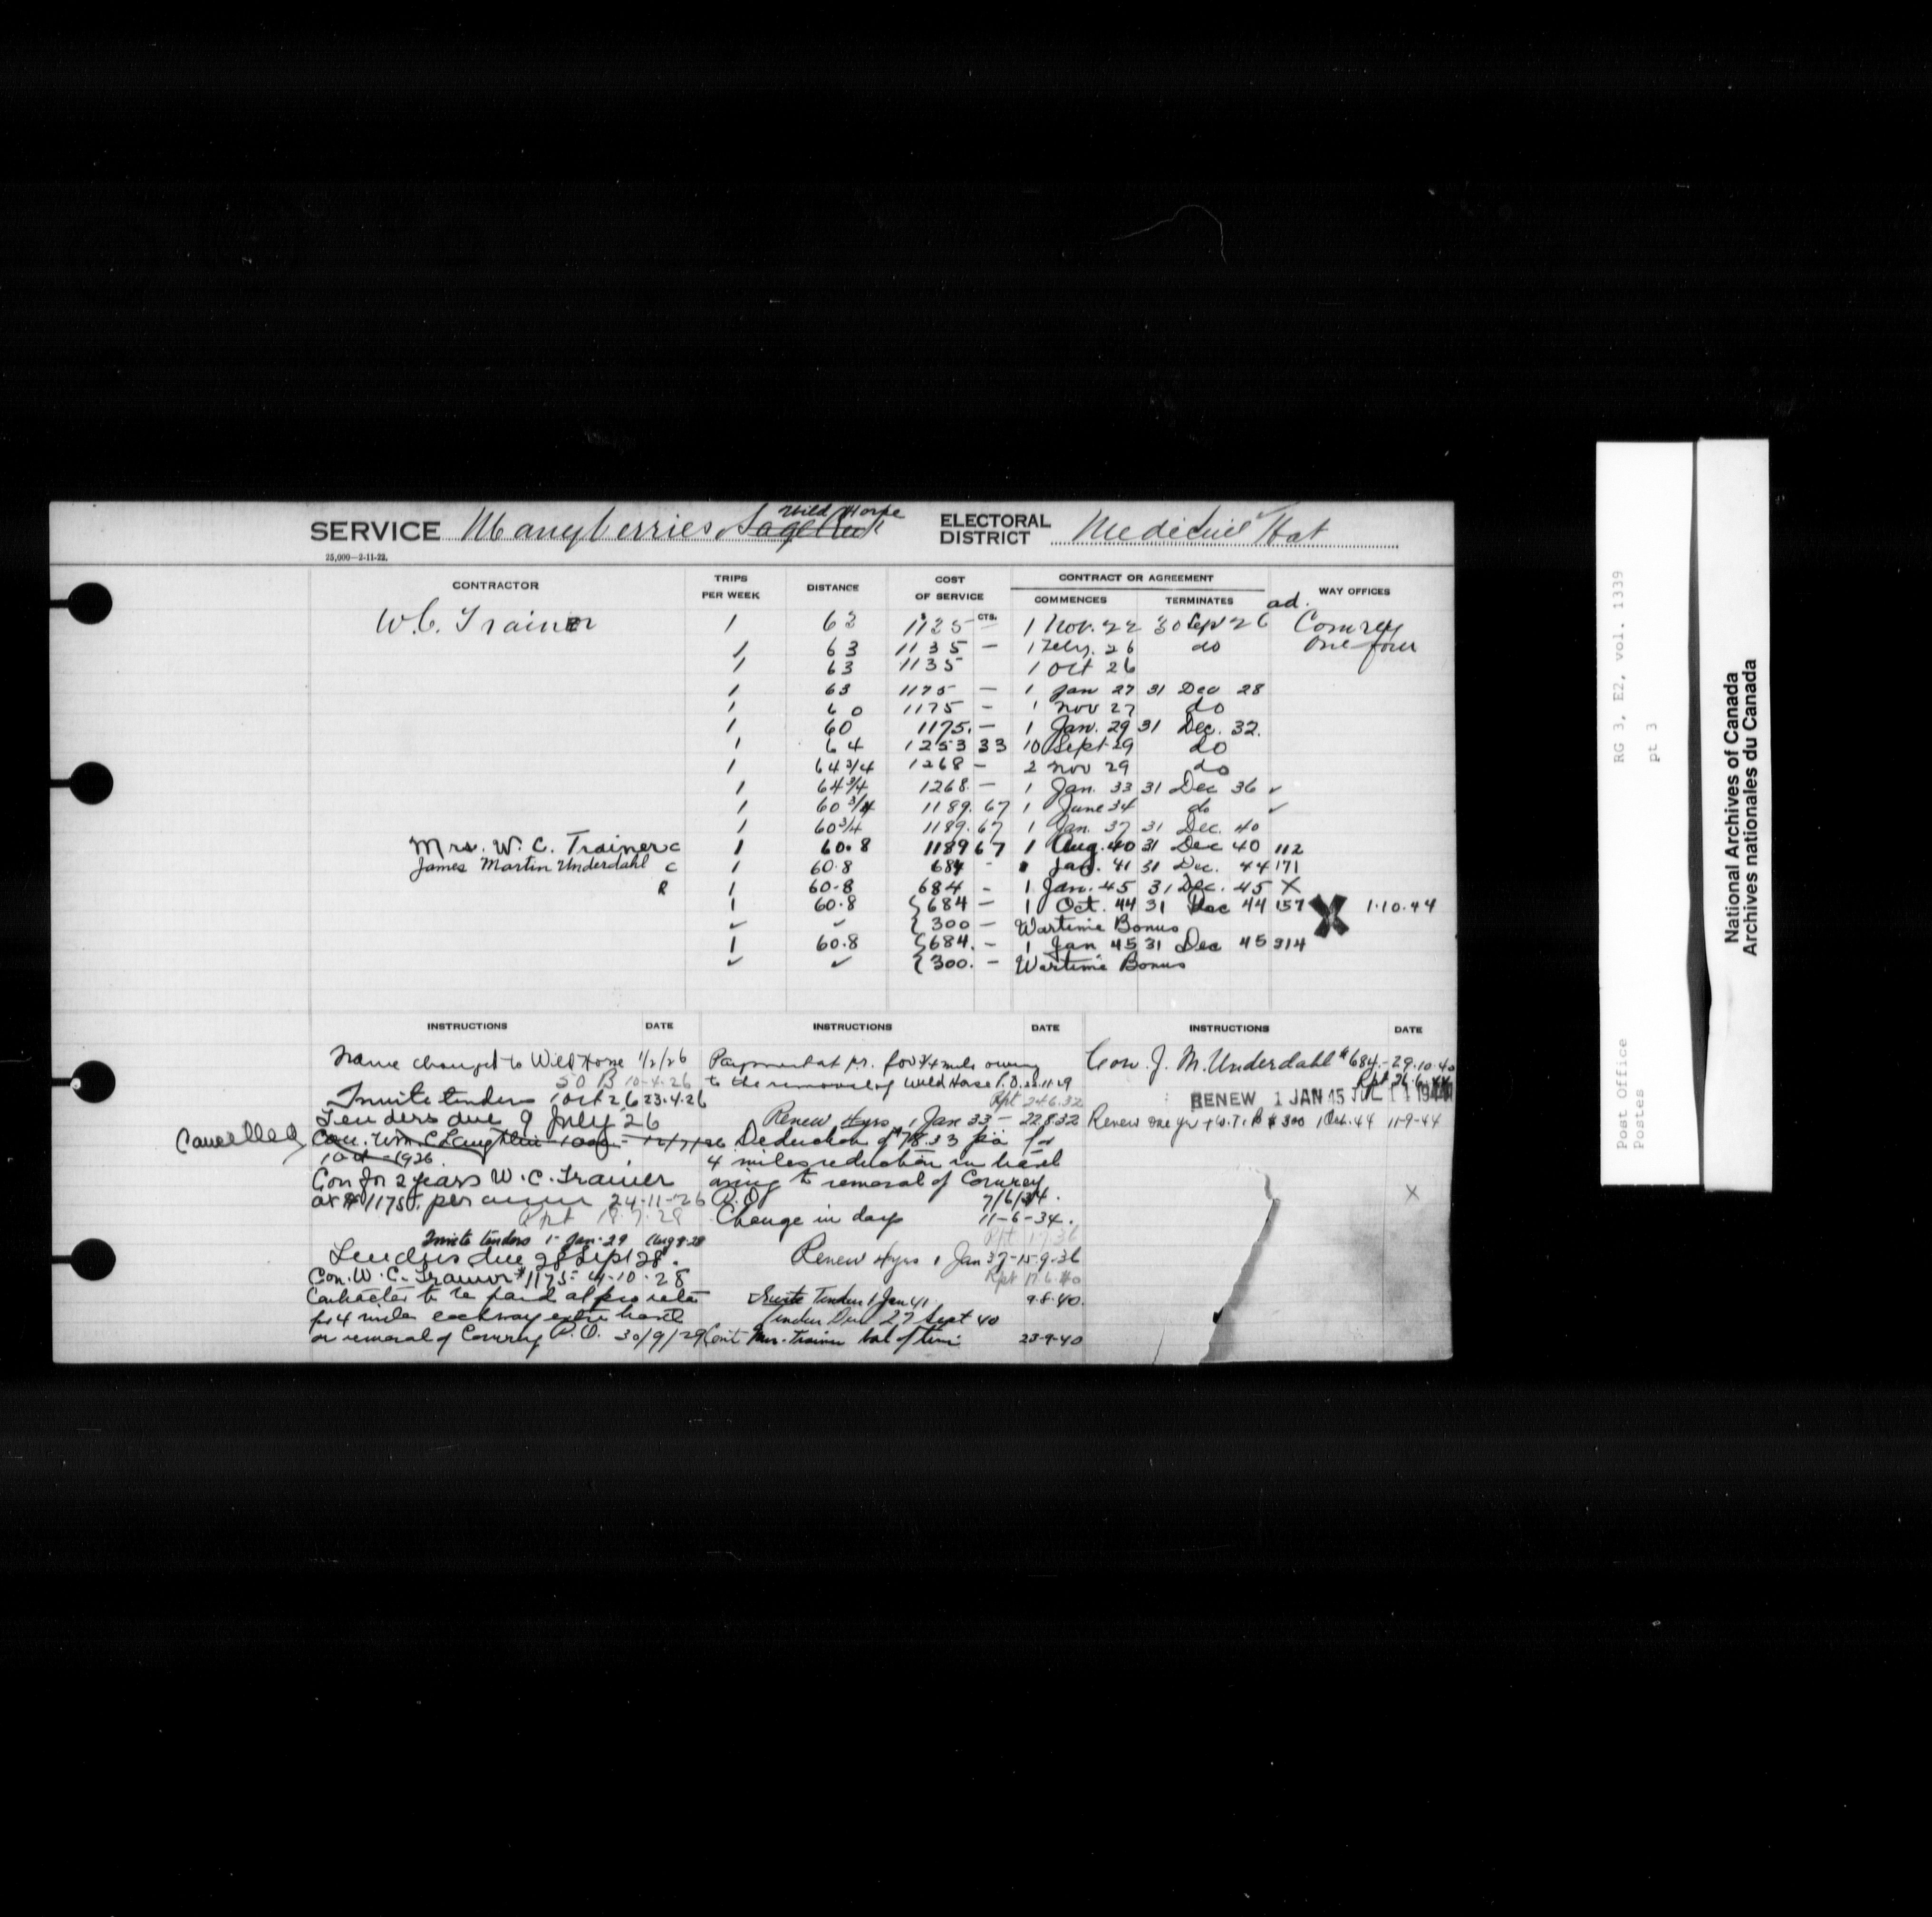 SERVICE Manyberries, Sage Creek Wild Horse ELECTORAL DISTRICT Medicine Hat
25,000—2-11-22.
CONTRACTOR TRIPS PER WEEK DISTANCE COST OF SERVICE CONTRACT OR AGREEMENT WAY OFFICES
CTS. COMMENCES TERMINATES ad.
W. C. Trainor 1 63 1125 — 1 Nov. 22 30 Sept 26 Comrey
1 63 1135 — 1 Feby. 26 do One-four
1 63 1135 1 Oct 26
1 63 1175 — 1 Jan 27 31 Dec 28
1 60 1175 - 1 Nov 27 do
1 60 1175. — 1 Jan. 29 31 Dec. 32.
1 64 1253 33 10 Sept 29 do
1 64 3/4 1268 — 2 Nov 29 do
1 64 3/4 1268. — 1 Jan. 33 31 Dec 36 ✓
1 60 3/4 1189. 67 1 June 34 do ✓
1 60 3/4 1189. 67 1 Jan. 37 31 Dec. 40
Mrs. W. C. Trainor C 1 60.8 1189 67 1 Aug. 40 31 Dec 40 112
James Martin Underdahl C 1 60.8 684 - 1 Jan. 41 31 Dec. 44 171
R 1 60.8 684 - 1 Jan. 45 31 Dec. 45 X
1 60.8 {684 — 1 Oct. 44 31 Dec 44 157 X 1.10.44
✓ ✓ {300 — Wartime Bonus
1 60.8 {684. — 1 Jan 45 31 Dec 45 314
✓ ✓ {300. — Wartime Bonus
INSTRUCTIONS DATE
Name changed to Wild Horse 1/2/26
50 B 10-4-26
Invite tenders 1 Oct 26 23.4.26
Tenders due 9 July 26
Cancelled Con. Wm. C Laughlin
1 Oct 1926
Con for 2 years W. C. Trainor
at $1175. per annum 24-11-26
Rpt 18.7.28
Invite tenders 1- Jan-29 Aug 8-28
Tenders due 28 Sept 28.
Con. W. C. Trainor $1175- 4-10-28
Contractor to be paid at pro rata
for 4 miles each way extra travel
on removal of Comrey P.O. 30/9/29
INSTRUCTIONS DATE
Payment at p.r. for 3/4 mile owing
to the removal of Wild Horse P.O. 22.11.29
Rpt 24.6.32
Renew 4 yrs 1 Jan 33 — 22.8.32
Deduction of $78.33 p.a. for
4 miles reduction in travel
owing to removal of Comrey
P.O. 7/6/34.
Change in days 11-6-34.
Rpt 1.7.36
Renew 4 yrs 1 Jan 37-15.9.36
Rpt 17.6.40
Invite Tenders 1 Jan 41. 9.8.40.
Tenders Due 27 Sept 40
Cont Mrs. Trainor bal of time 23-9-40
INSTRUCTIONS DATE
Con. J. M. Underdahl $684.-29.10.40
Rpt 26.6.44
RENEW 1 JAN 45 JUL 11 1944
Renew one yr + W.T.B $300 1 Oct. 44 11-9-44
X
RG 3, E2, vol. 1339
pt 3
Post Office
Postes
National Archives of Canada
Archives nationales du Canada